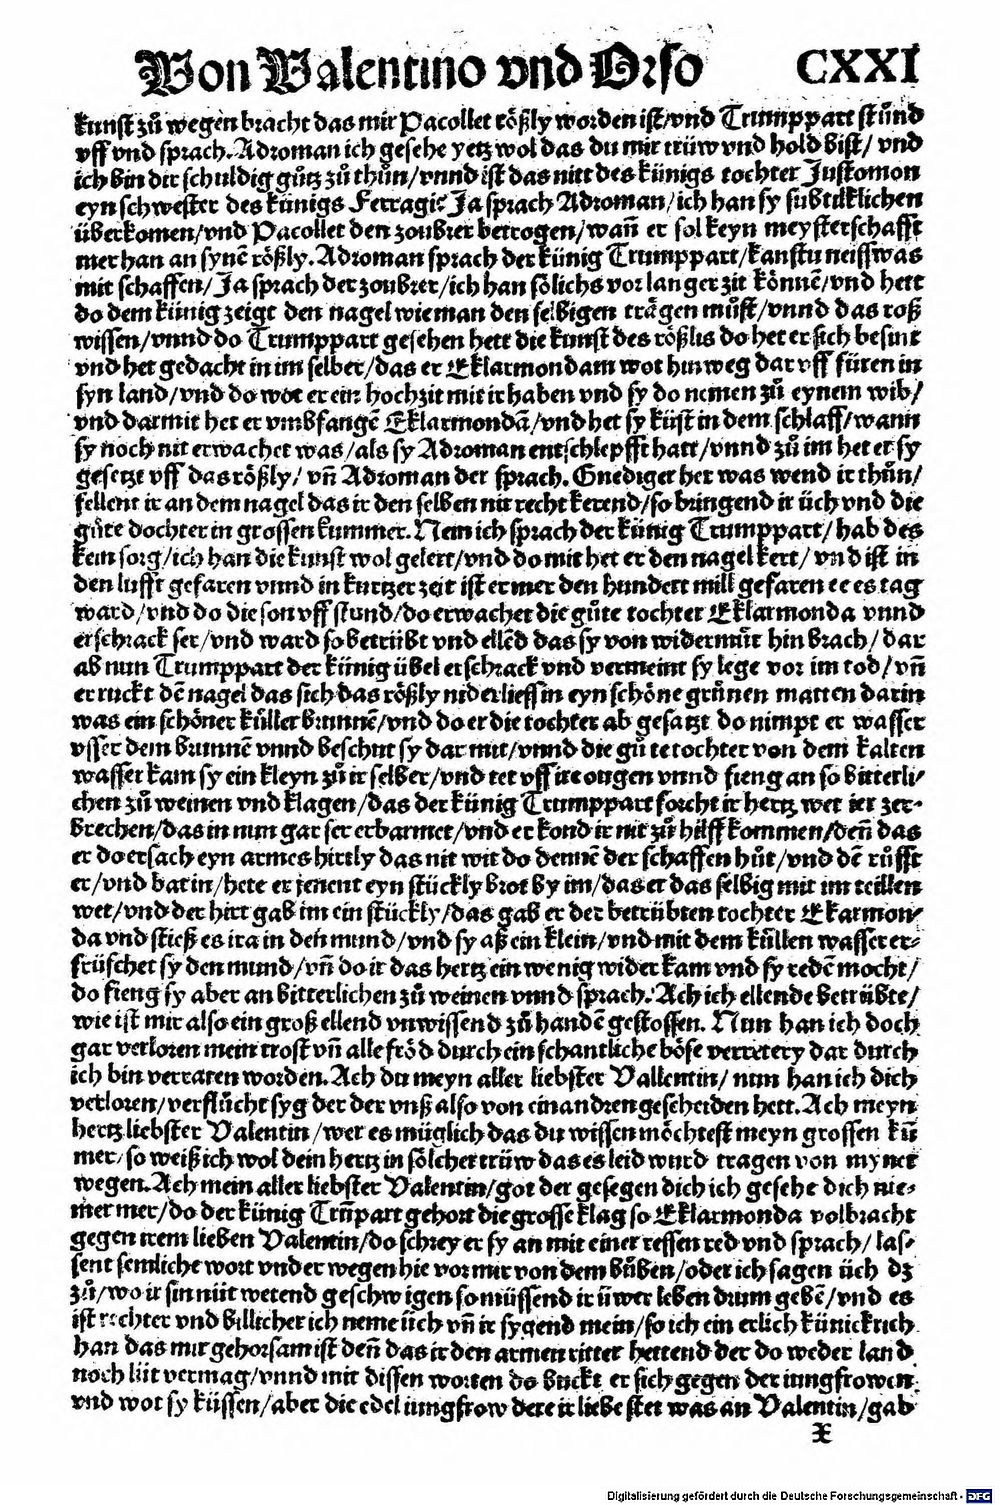 Von Valentino vnd Orso CXXI
kunst zů wegen bracht das mit Pacollet rößly worden ist/vnd Trumppart stůnd
vff vnd sprach. Adroman ich gesehe yetz wol das du mir trüw vnd hold bist/ vnd
ich bin dir schuldig gůtz zů thůn/vnnd ist das nitt des künigs tochter Justomon
eyn schwester des künigs Ferragis Ja sprach Adroman/ich han sy subtilklichen
überkomen/vnd Pacollet den zoubrer betrogen/wañ er sol keyn meysterschafft
mer han an synē rößly. Adroman sprach der künig Trumppart/kanstu neisswas
mit schaffen/Ja sprach der zoubrer/ich han sölichs vor langer zit könnē/vnd hett
do dem künig zeigt den nagel wie man den selbigen trägen můst/vnnd das roß
wissen/vnnd do Trumppart gesehen hett die kunst des rößlis do het er sich besint
vnd het gedacht in im selber/das er Eklarmondam wot hinweg dar vff füren in
syn land/vnd do wot er ein hochzit mit ir haben vnd sy do nemen zů eynem wib/
vnd darmit het er vmbfangē Eklarmondā/vnd het sy küst in dem schlaff/wann
sy noch nit erwachet was/als sy Adroman entschlepfft hatt/vnnd zů im het er sy
gesetzt vff das rößly/ vñ Adroman der sprach. Gnediger her was wend ir thůn/
fellent ir an dem nagel das ir den selben nit recht kerend/so bringend ir üch vnd die
gůte dochter in grossen kummer. Nein ich sprach der künig Trumppart/ hab des
kein sorg/ich han die kunst wol gelert/vnd do mit het er den nagel kert/ vnd ist in
den lufft gefaren vnnd in kurtzer zeit ist er mer den hundert mill gefaren ee es tag
ward/vnd do die son vff stund/do erwachet die gůte tochter Eklarmonda vnnd
erschrack ser/vnd ward so betrübt vnd ellēd das sy von widermůt hin brach/ dar
ab nun Trumppart der künig übel erschrack vnd vermeint sy lege vor im tod/ vñ
er ruckt dē nagel das sich das rößly niderliess in eyn schöne grůnen matten darin
was ein schöner kůller brunnē/vnd do er die tochter ab gesatzt do nimpt er wasser
vsser dem brunnē vnnd beschut sy dar mit/vnnd die gůte tochter von dem kalten
wasser kam sy ein kleyn zů ir selber/vnd tet vff ire ougen vnnd fieng an so bitterli⸗
chen zů weinen vnd klagen/das der künig Trumppart forcht ir hertz wet ier zer⸗
brechen/das in nun gar ser erbarmet/vnd er kond ir nit zů hilff kommen/deñ das
er do ersach eyn armes hirtly das nit wit do dennē der schaffen hůt/vnd dē růfft
er/vnd bat in/hete er jenent eyn stückly brot by im/das er das selbig mit im teillen
wet/vnd der hirt gab im ein stückly/das gab er der betrübten tochter Ekarmon⸗
da vnd stieß es ir a in den mund/vnd sy aß ein klein/vnd mit dem kůllen wasser er⸗
früschet sy den mund/vñ do ir das hertz ein wenig wider kam vnd sy redē mocht/
do fieng sy aber an bitterlichen zů weinen vnnd sprach. Ach ich ellende betrübte/
wie ist mir also ein groß ellend vnwissend zů handē gestossen. Nun han ich doch
gar verloren mein trost vñ alle fröd durch ein schantliche böse verretery dar durch
ich bin verraten worden. Ach du meyn aller liebster Vallentin/ nun han ich dich
verloren/verflůcht syg der der vnß also von einandren gescheiden hett. Ach meyn
hertz liebster Valentin/wer es müglich das du wissen möchtest meyn grossen kū
mer/so weiß ich wol dein hertz in sölcher trüw das es leid wurd tragen von myner
wegen. Ach mein aller liebster Valentin/got der gesegen dich ich gesehe dich nie⸗
mer mer/do der künig Trūpart gehort die grosse klag so Eklarmonda volbracht
gegen irem lieben Valentin/do schrey er sy an mit einer ressen red vnd sprach/ las⸗
sent semliche wort vnderwegen hie vor mir von dem bůben/oder ich sagen üch dz
zů/wo ir sin nüt wetend geschwigen so müssend ir üwer leben drum gebē/vnd es
ist rechter vnd billicher ich neme üch vñ ir sygend mein/so ich ein erlich künickrich
han das mir gehorsam ist deñ das ir den armen ritter hettend der do weder land
noch lüt vermag/vnnd mit dissen worten do buckt er sich gegen der iungfrowen
vnd wot sy küssen/aber die edel iungfrow dere ir liebe stet was an Valentin/gab
X
Digitalisierung gefördert durch die Deutsche Forschungsgemeinschaft - DFG